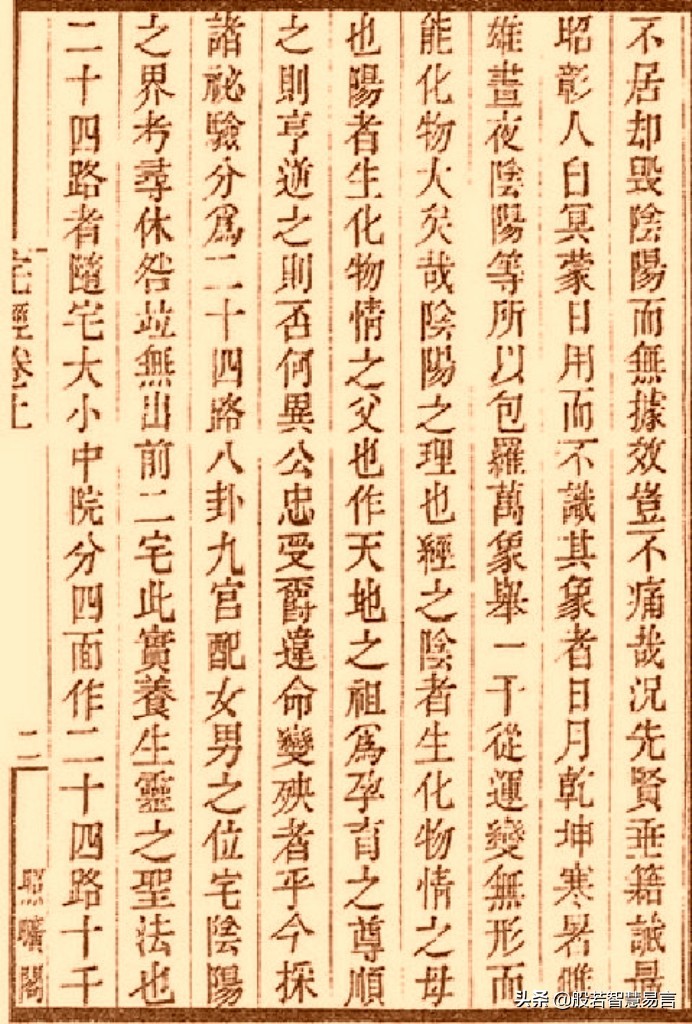 不居却毀陰陽而無據效豈不痛哉況先賢垂籍誡
昭彰人自冥蒙日用而不識其象者日月乾坤寒暑雌
雄晝夜陰陽等所以包羅萬象舉一千從運變無形而
能化物大矣哉陰陽之理也經之陰者生化物情之母
也陽者生化物情之父也作天地之祖爲孕育之尊順
之則亨逆之則否何異公忠受爵違命變殃者乎今採
諸祕驗分爲二十四路八卦九宮配女男之位宅陰陽
之界考尋休咎並無出前二宅此實養生靈之聖法也
二十四路者隨宅大小中院分四面作二十四路十千
宅經卷上
二
照曠閣
头条 @般若智慧易言